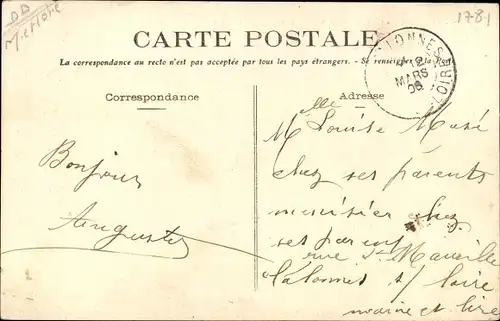 DD
M.et Loire
1781
CARTE POSTALE
La correspondance au recto n'est pas acceptée par tous les pays étrangers. Se renseigner à la
LONNES
12
MARS
06
LOIRE
Correspondance
Adresse
Bonjour
Auguste
Mlle Louise
chez ses parents
menuisier chez
ses parents
rue St Maurille
Chalonnes s/ loire
maine et lire